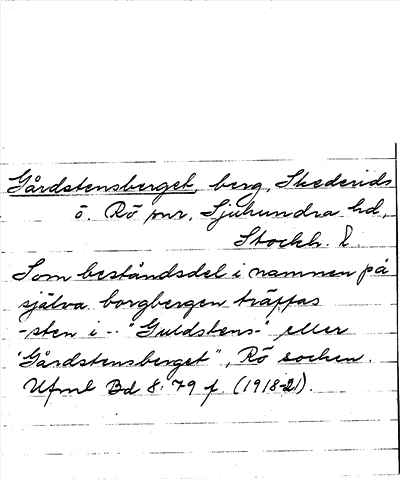 Gårdstensberget, berg, Skederids
o. Rö snr, Sjuhundra hd,
Stockh. l.
Som beståndsdel i namnen på
själva borgbergen träffas
-sten i -- "Guldstens-" eller
"Gårdstensberget", Rö socken.
Ufmt Bd 8:79 f. (1918-21).